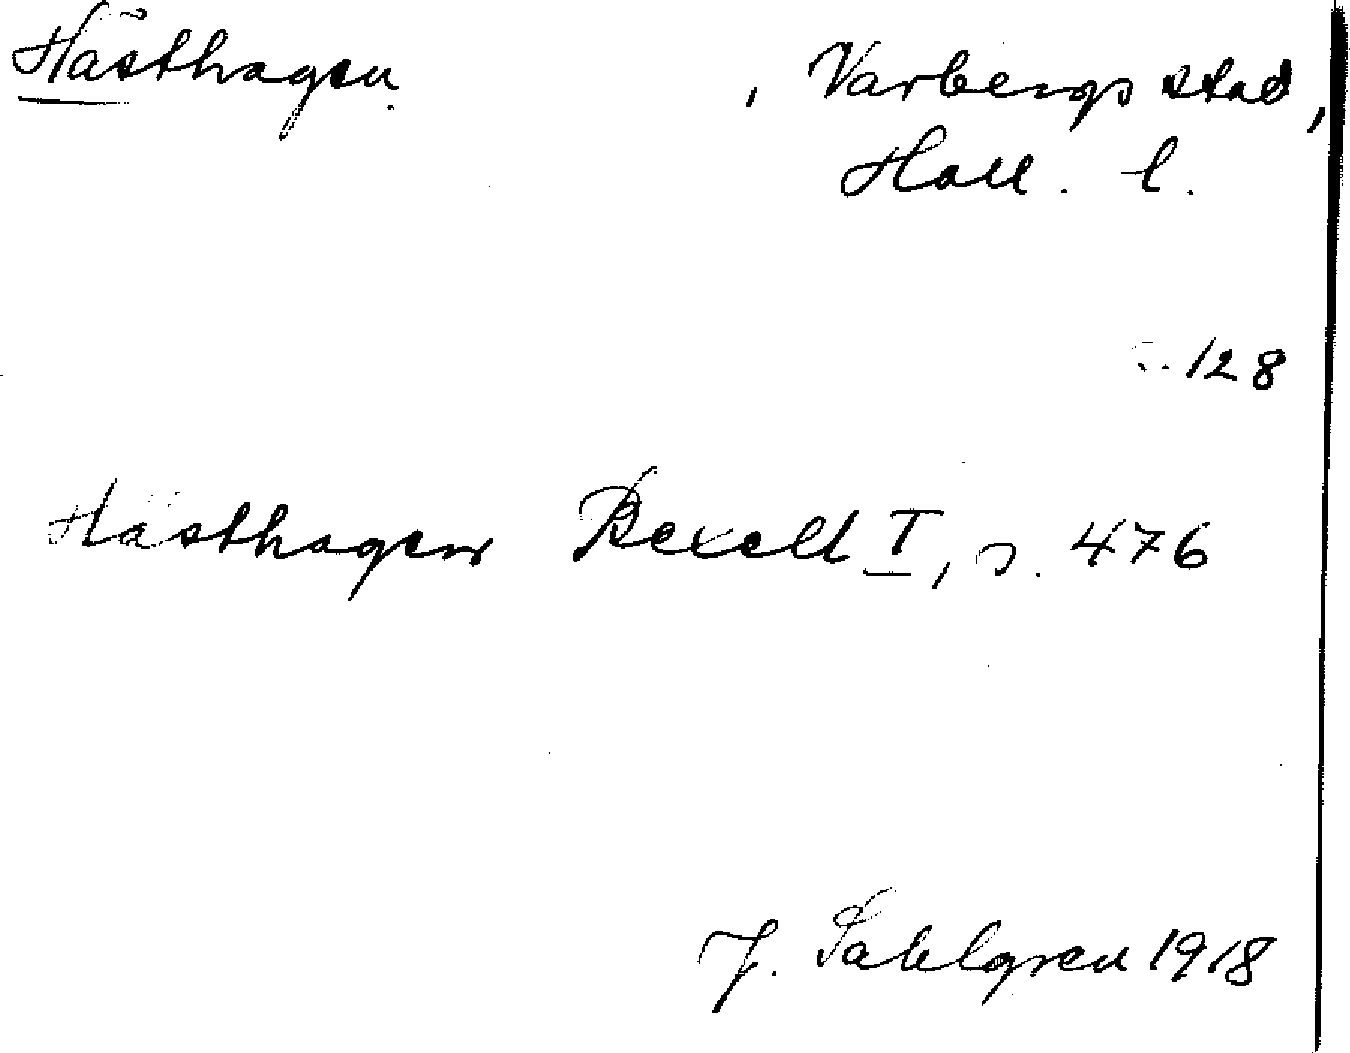 Hästhagen , Varbergs stad,
Hall. l.
128
Hästhagen Bexell I, s. 476
J. Sahlgren 1918